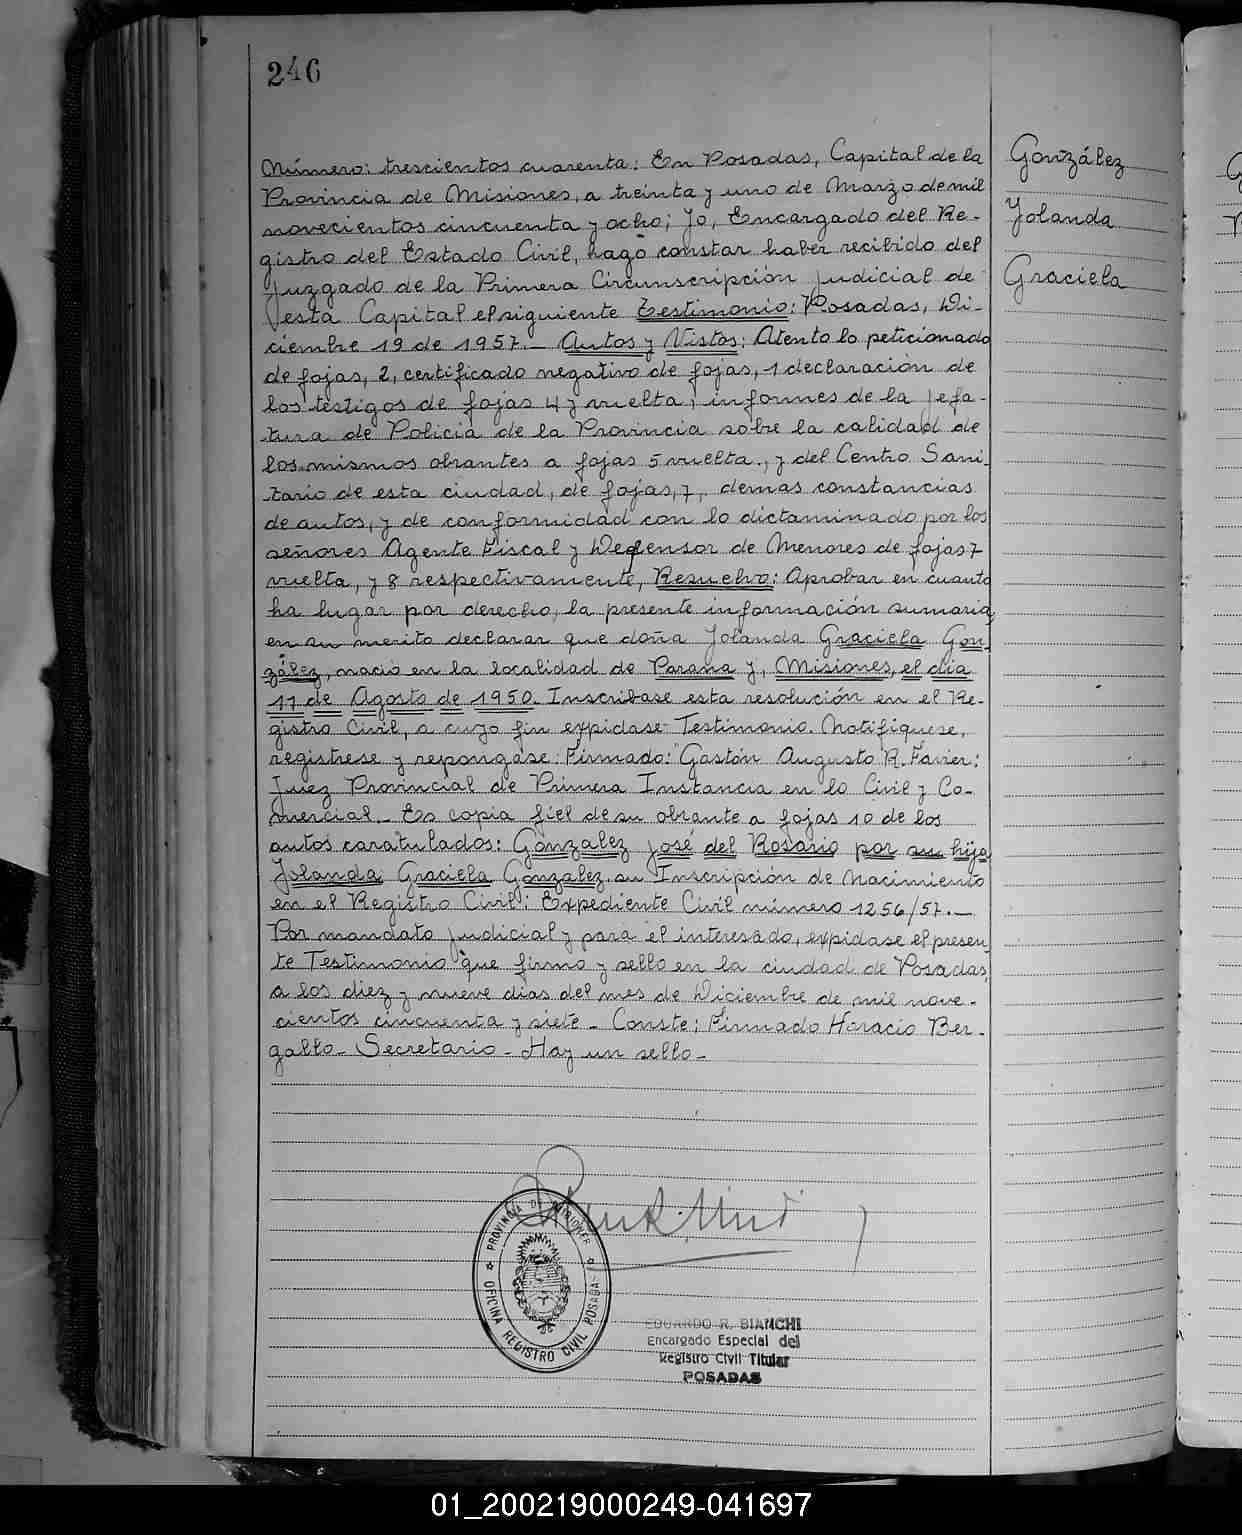 246
Número: trescientos cuarenta: En Posadas, Capital de la
Provincia de Misiones, a treinta y uno de Marzo de mil
novecientos cincuenta y ocho; Yo, Encargado del Re-
gistro del Estado Civil, hago constar haber recibido del
Juzgado de la Primera Circunscripción Judicial de
esta Capital el siguiente Testimonio: Posadas, Di-
ciembre 19 de 1957.- Autos y Vistos: Atento lo peticionado
de fojas, 2, certificado negativo de fojas, 1 declaración de
los testigos de fojas 4 y vuelta, informes de la Jefa-
tura de Policia de la Provincia sobre la calidad de
los mismos obrantes a fojas 5 vuelta., y del Centro Sani-
tario de esta ciudad, de fojas, 7, demas constancias
de autos, y de conformidad con lo dictaminado por los
señores Agente Fiscal y Defensor de Menores de fojas 7
vuelta, y 8 respectivamente, Resuelvo: Aprobar en cuanto
ha lugar por derecho, la presente información sumaria,
en su merito declarar que doña Jolanda Graciela Gon-
zález, nacio en la localidad de Parana y, Misiones, el dia
11 de Agosto de 1950. Inscribase esta resolución en el Re-
gistro Civil, a cuyo fin expidase Testimonio. Notifiquese,
registrese y repongase: Firmado: Gastón Augusto R. Favier:
Juez Provincial de Primera Instancia en lo Civil y Co-
mercial.- Es copia fiel de su obrante a fojas 10 de los
autos caratulados: Gonzalez José del Rosario por su hija
Jolanda Graciela Gonzalez su Inscripción de Nacimiento
en el Registro Civil: Expediente Civil número 1256/57.-
Por mandato judicial y para el interesado, expidase el presen-
te Testimonio que firmo y sello en la ciudad de Posadas,
a los diez y nueve dias del mes de Diciembre de mil nove-
cientos cincuenta y siete - Conste: Firmado Horacio Ber-
gallo - Secretario - Hay un sello -
González
Jolanda
Graciela
PROVINCIA DE MISIONES
OFICINA REGISTRO CIVIL POSADAS
EDUARDO R. BIANCHI
Encargado Especial del
Registro Civil Titular
POSADAS
01_200219000249-041697